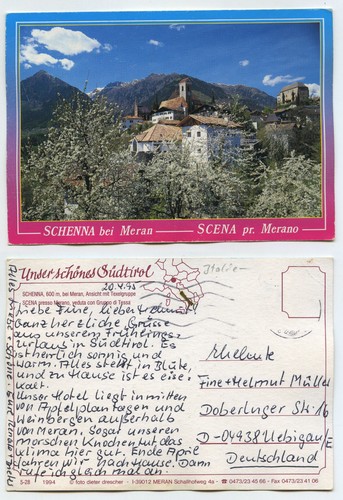 SCHENNA bei Meran SCENA pr. Merano
Unser schönes Südtirol
SCHENNA, 600 m, bei Meran, Ansicht mit Texelgruppe
SCENA presso Merano, veduta con Gruppo di Tessa
Italie
20.4.95
Liebe Fine, lieber Helmut
Ganz herzliche Grüsse
aus unserem Frühlings-
urlaub in Südtirol. Es
ist herrlich sonnig und
warm. Alles steht in Blüte,
und zu Hause ist es eise-
kalt.
Unser Hotel liegt inmitten
von Apfelplantagen und
Weinbergen außerhalb
von Meran. Sogar unseren
morschen Knochen tut das
Klima hier gut. Ende April
fahren wir nach Hause. Dann
rufe ich gleich mal an.
Eheleute
Fine + Helmut Müller
Doberluger Str. 16
D-04938 Uebigau/E
Deutschland
3-28 1994 © foto dieter drescher - I-39012 MERAN Schafferhofweg 4a - ☎ 0473/23 45 66 - Fax 0473/23 41 06